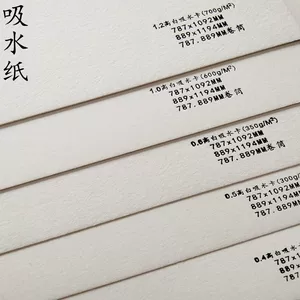 吸水纸
1.2高白吸水卡(700g/M²)
787x1092MM
889x1194MM
787.889MM卷筒
1.0高白吸水卡(600g/M²)
787x1092MM
889x1194MM
787.889MM卷筒
0.6高白吸水卡(350g/M²)
787x1092MM
889x1194MM
787.889MM卷筒
0.5高白吸水卡(300g
787x1092MM
889x1194MM
787.889MM卷
0.4高白吸水卡
787x1092
889x11
787.8